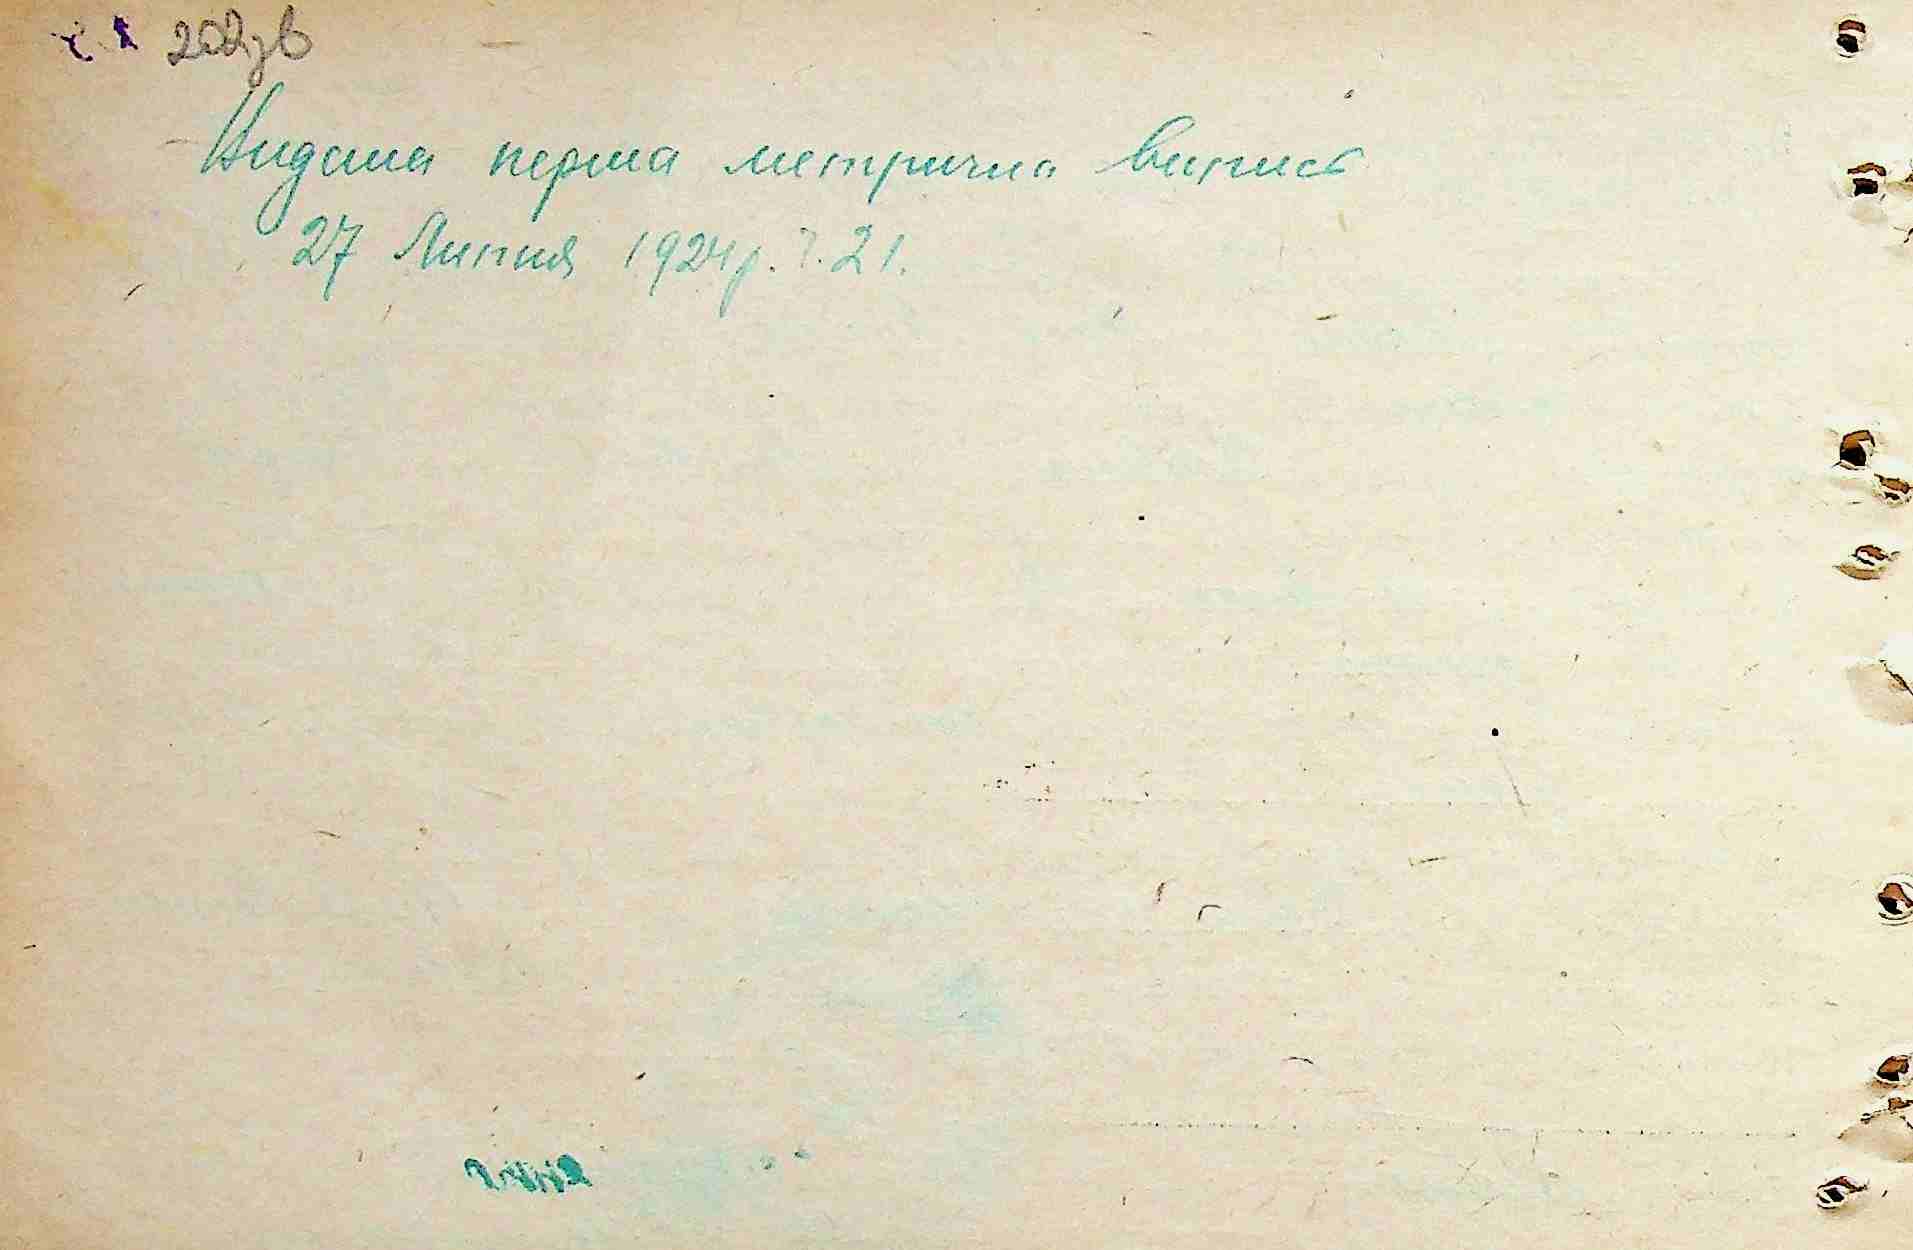 202зв
Видана перша метрична випись
27 Липня 1924 р. Ч. 21.